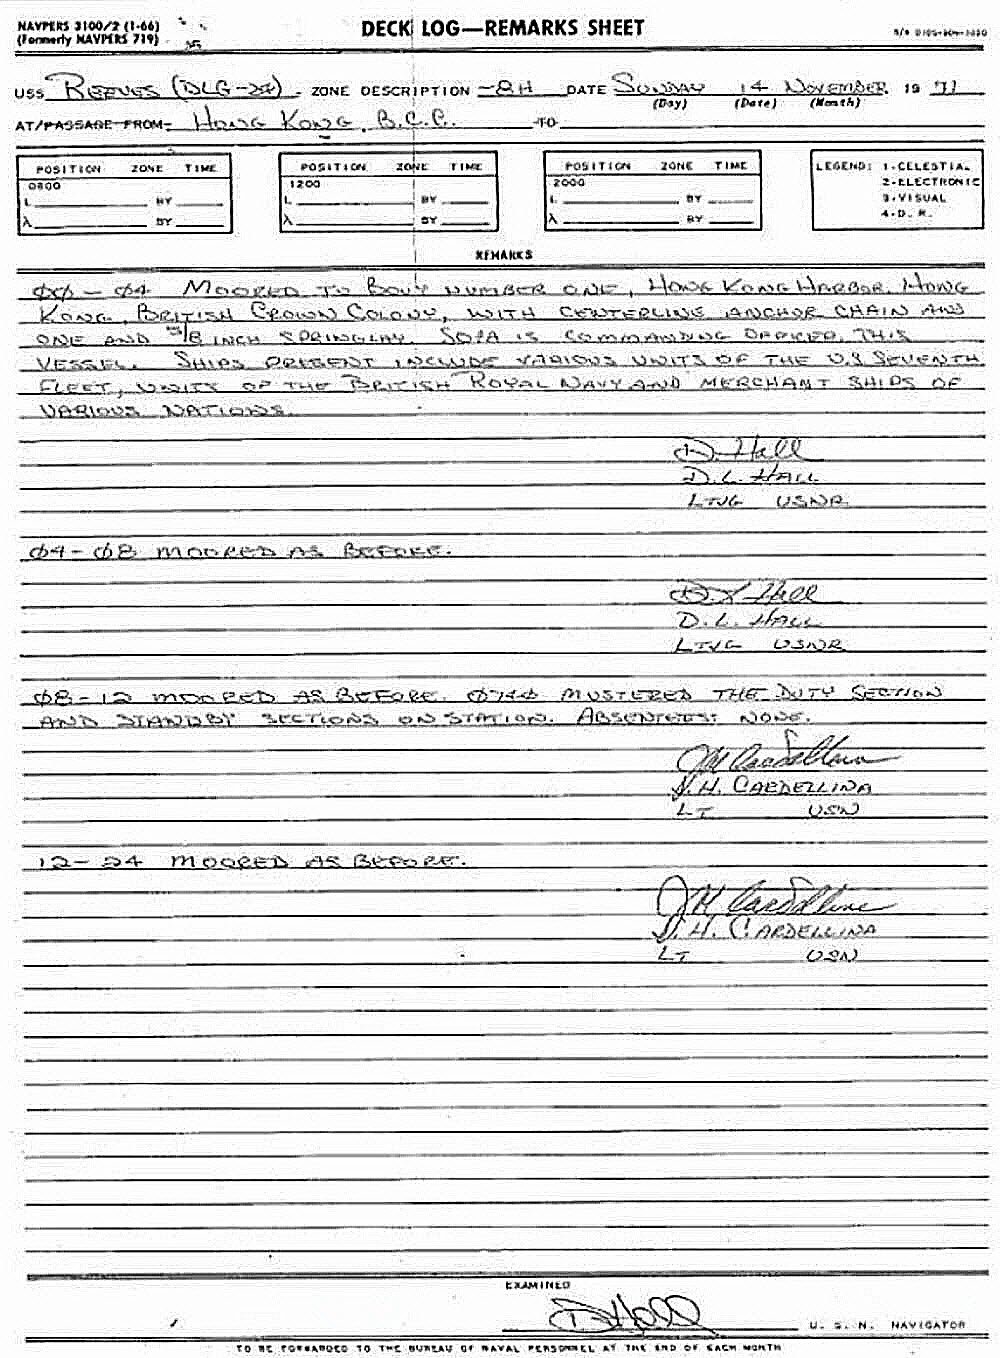 NAVPERS 3100/2 (1-66)
(Formerly NAVPERS 719)
DECK LOG—REMARKS SHEET
USS REEVES (DLG-24) ZONE DESCRIPTION -8H DATE SUNDAY 14 NOVEMBER 19 71
(Day) (Date) (Month)
AT/PASSAGE FROM: HONG KONG, B.C.C. TO
POSITION ZONE TIME
0800
L BY
λ BY
POSITION ZONE TIME
1200
L BY
λ BY
POSITION ZONE TIME
2000
L BY
λ BY
LEGEND: 1-CELESTIAL
2-ELECTRONIC
3-VISUAL
4-D. R.
REMARKS
00 - 04 MOORED TO BOUY NUMBER ONE, HONG KONG HARBOR, HONG
KONG, BRITISH CROWN COLONY, WITH CENTERLINE ANCHOR CHAIN AND
ONE AND 5/8 INCH SPRINGLAY. SOPA IS COMMANDING OFFICER, THIS
VESSEL. SHIPS PRESENT INCLUDE VARIOUS UNITS OF THE U.S SEVENTH
FLEET, UNITS OF THE BRITISH ROYAL NAVY AND MERCHANT SHIPS OF
VARIOUS NATIONS.
D. Hall
D. L. HALL
LTJG USNR
04 - 08 MOORED AS BEFORE.
D. L Hall
D. L. HALL
LTJG USNR
08 - 12 MOORED AS BEFORE. 0700 MUSTERED THE DUTY SECTION
AND STANDBY SECTIONS ON STATION. ABSENTEES: NONE.
J H Cardellina
J. H. CARDELLINA
LT USN
12 - 24 MOORED AS BEFORE.
J H Cardellina
J. H. CARDELLINA
LT USN
EXAMINED
D Hall
U. S. N. NAVIGATOR
TO BE FORWARDED TO THE BUREAU OF NAVAL PERSONNEL AT THE END OF EACH MONTH